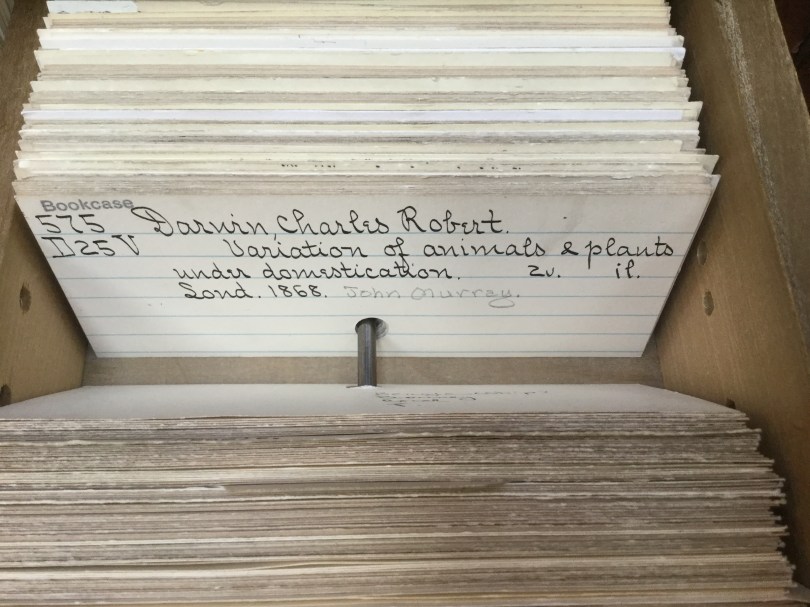 Bookcase
575 Darwin, Charles Robert.
D25V Variation of animals & plants
under domestication. 2v. il.
Lond. 1868. John Murray.